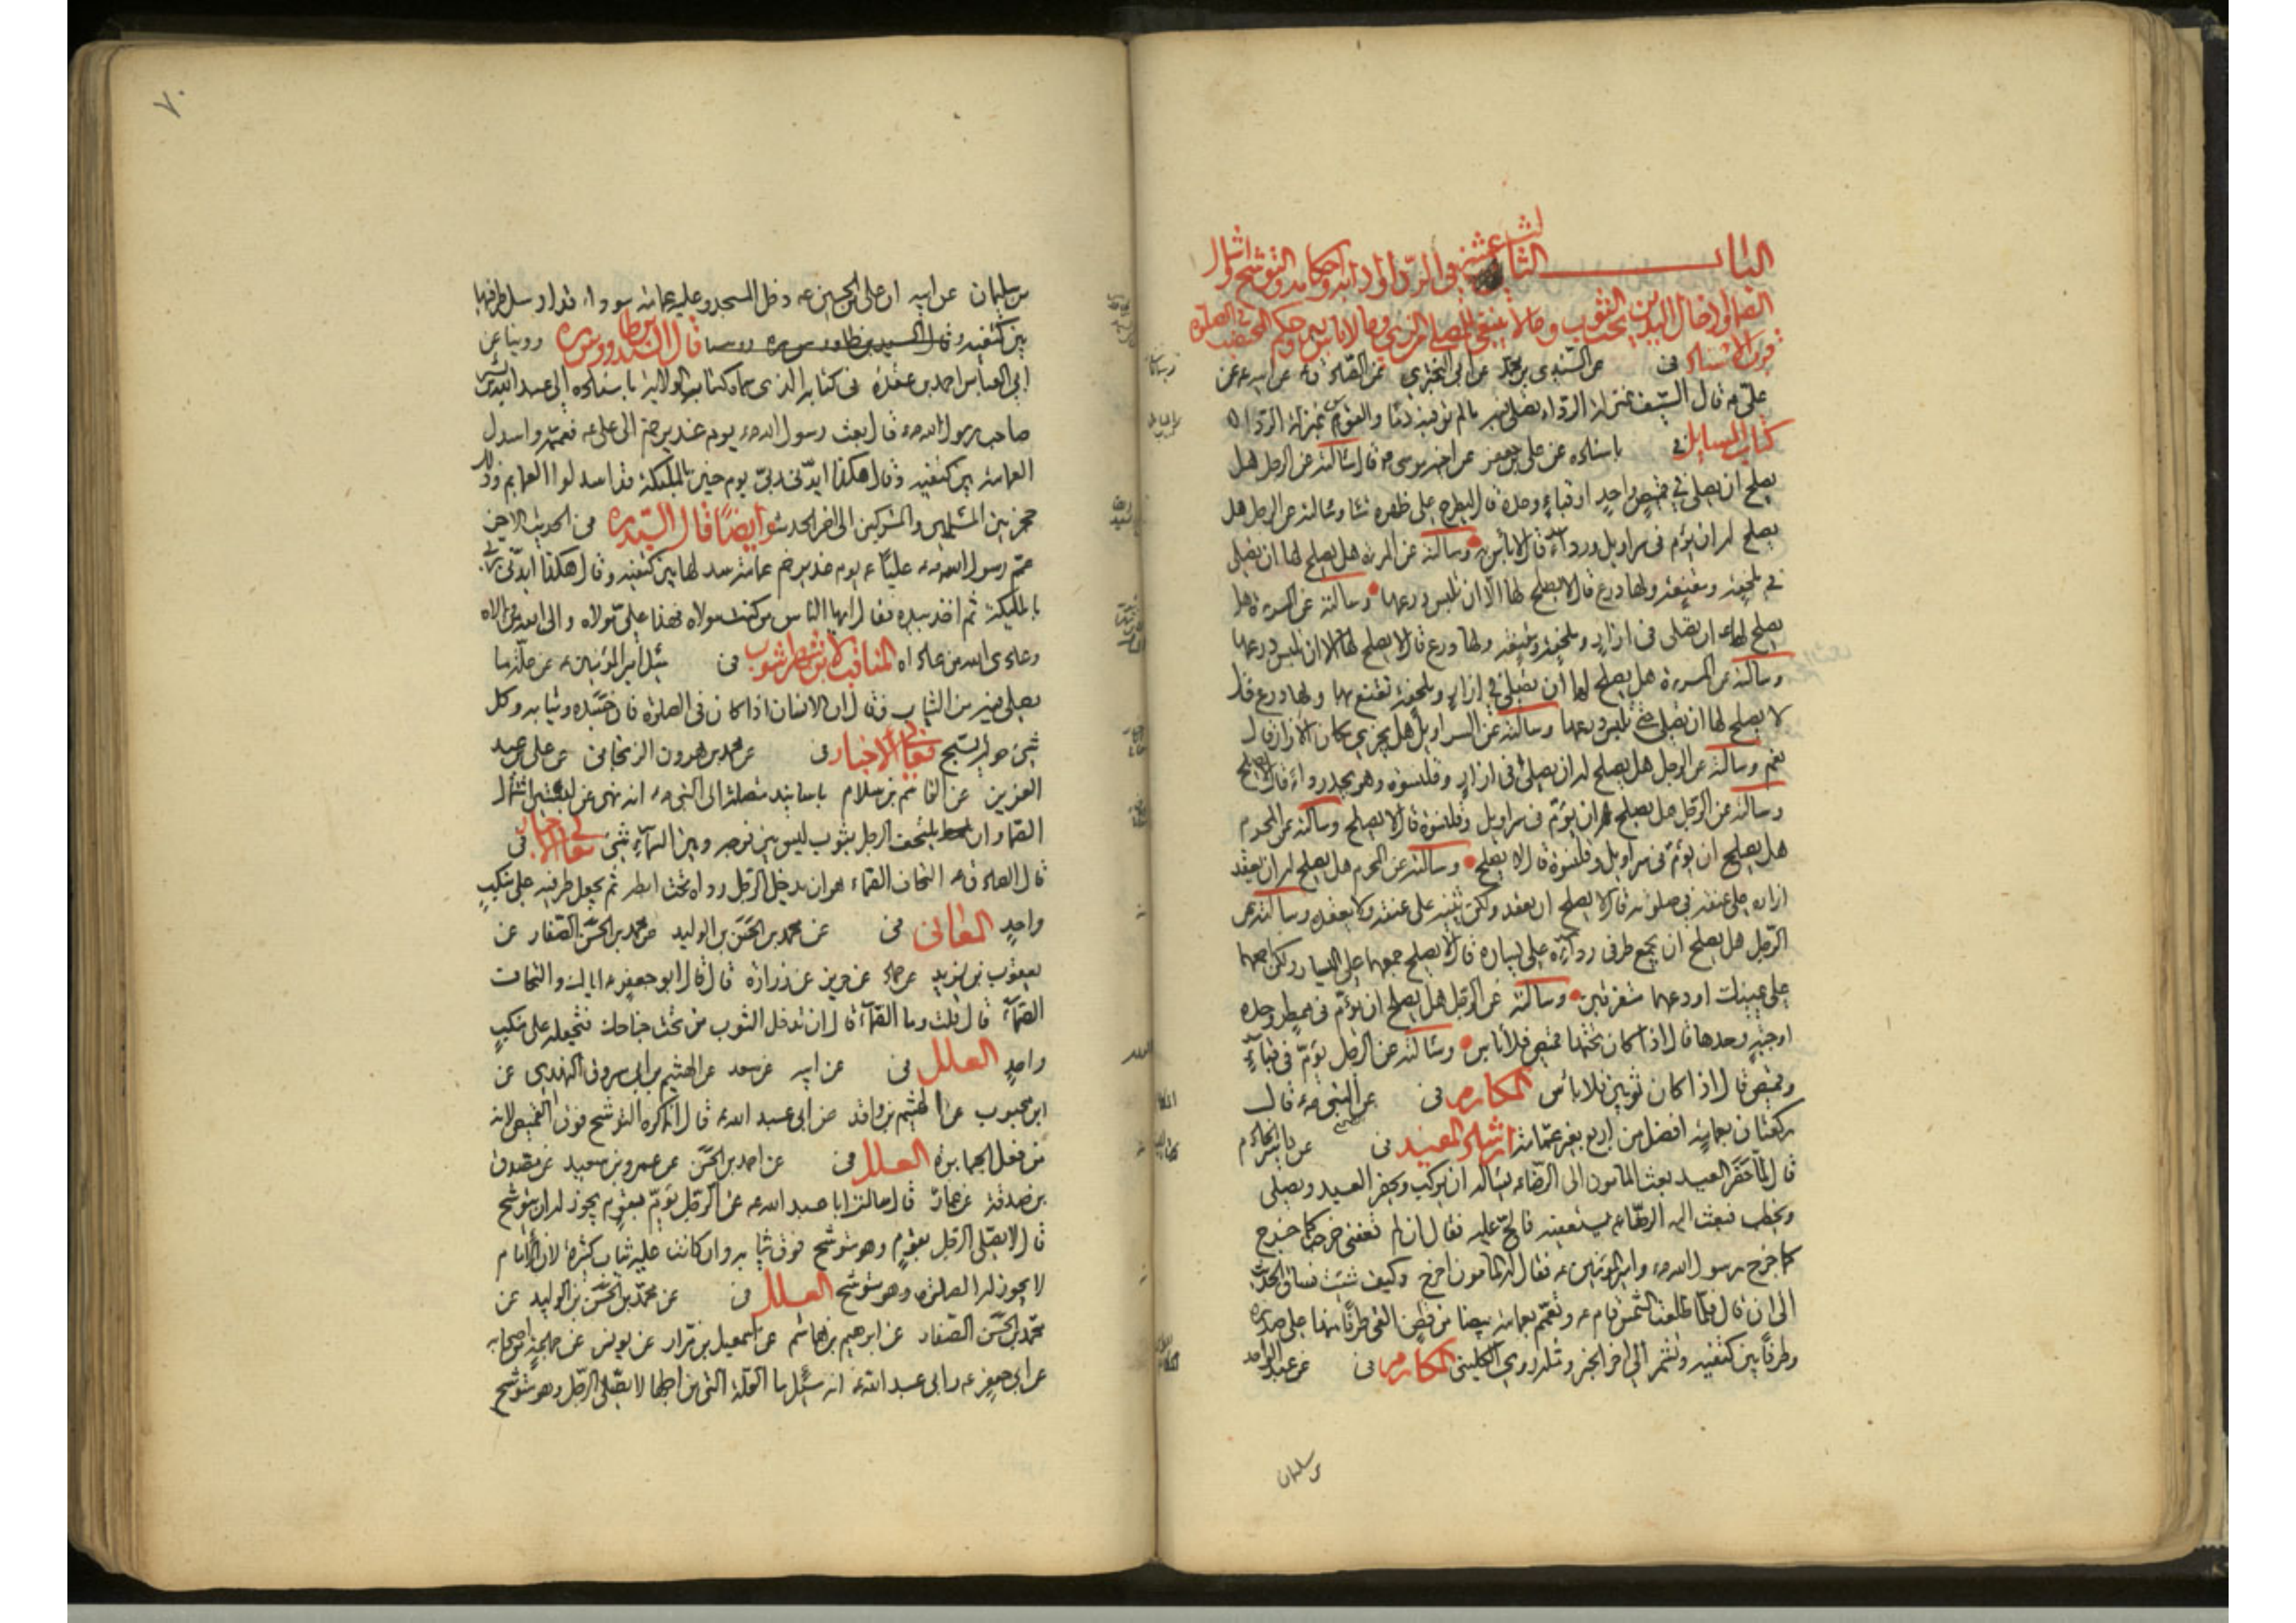 البـــــاب الثالث عشر في الرداء وادابه واحكامه والتوشح واشتمال
الصماء وادخال اليدين تحت الثوب وما لا ينبغي للمصلي من الزي وما لا باس به وحكم المختضب في الصلوة
قرب الاسناد في عن السندي بن محمد عن ابي البختري عن الصادق ع عن ابيه ع عن
علي ع قال السيف بمنزلة الرداء تصلي فيه ما لم تر فيه دما والقوس بمنزلة الرداء
كتاب المسايل في باسناده عن علي بن جعفر عن اخيه موسى ع قال سالته عن الرجل هل
يصلح ان يصلي في قميص واحد او قباء وحده قال ليطرح على ظهره شيئا وسالته عن الرجل هل
يصلح له ان يؤم في سراويل ورداء قال لا باس به وسالته عن المرءة هل يصلح لها ان تصلي
في ملحفة ومقنعة ولها درع قال لا يصلح لها الا ان تلبس درعها وسالته عن المرءة هل
يصلح لها ان تصلي في ازار وملحفة ومقنعة ولها درع قال لا يصلح لها الا ان تلبس درعها
وسالته عن المرءة هل يصلح لها ان تصلي في ازار وملحفة تقنع بها ولها درع قال
لا يصلح لها ان تصلي حتى تلبس درعها وسالته عن السراويل هل يجزي مكان الازار قال
نعم وسالته عن الرجل هل يصلح له ان يصلي في ازار وقلنسوة وهو يجد رداء قال لا يصلح
وسالته عن الرجل هل يصلح له ان يؤم في سراويل وقلنسوة قال لا يصلح وسالته عن المحرم
هل يصلح ان يؤم في سراويل وقلنسوة قال لا يصلح وسالته عن المحرم هل يصلح له ان يعقد
ازاره على عنقه في صلوته قال لا يصلح ان يعقد ولكن يثنيه على عنقه ولا يعقده وسالته عن
الرجل هل يصلح ان يجمع طرفي رداءه على يساره قال لا يصلح جمعهما على اليسار ولكن اجمعهما
على يمينك او دعهما متفرقين وسالته عن الرجل هل يصلح ان يؤم في ممطر وحده
او جبة وحدها قال اذا كان تحتها قميص فلا باس وسالته عن الرجل يؤم في قباء
وقميص قال اذا كان ثوبين فلا باس المكارم في عن النبي ص قال
ركعتان بعمامة افضل من اربع بغير عمامة ارشاد المفيد في عن ياسر الخادم
قال لما حضر العيد بعث المامون الى الرضا ع يساله ان يركب ويحضر العيد ويصلي
ويخطب فبعث اليه الرضا ع يستعفيه فالح عليه فقال ان لم تعفني خرجت كما خرج
كما خرج رسول الله ص وامير المؤمنين ع فقال له المامون اخرج وكيف شئت فساق الحديث
الى ان قال فلما طلعت الشمس قام ع وتعمم بعمامة بيضا من قطن القى طرفا منها على صدره
وطرفا بين كتفيه وتشمر الى اخر الخبر ومثله روى الكليني المكارم في عن عبد الله
بن سليمان
٧٠
بن سليمان عن ابيه ان علي بن الحسين ع دخل المسجد وعليه عمامة سوداء قد ارسل طرفيها
بين كتفيه وقال السيد بن طاوس ره قال السيد بن طاووس ره روينا عن
ابي العباس احمد بن عقدة في كتابه الذي سماه كتاب الولاية باسناده الى عبد الله بن بشر
صاحب رسول الله ص قال بعث رسول الله ص يوم غدير خم الى علي ع فعممه واسدل
العمامة بين كتفيه وقال هكذا ايدني ربي يوم حنين بالمليكة قد اسدلوا العمايم وذلك
حجز بين المسلمين والمشركين الى اخر الحديث وايضا قال السيد ره في الحديث الاخر
عمم رسول الله ص عليا ع يوم غدير خم عمامة سدلها بين كتفيه وقال هكذا ايدني ربي
بالمليكة ثم اخذ بيده فقال ايها الناس من كنت مولاه فهذا علي مولاه والى الله من والاه
وعادى الله من عاداه المناقب لابن شهراشوب في سئل امير المؤمنين ع عن علة ما
يصلي فيه من الثياب فقال ان الانسان اذا كان في الصلوة فان جسده وثيابه وكل
شيء حوله يسبح معاني الاخبار في عن محمد بن هرون الزنجاني عن علي بن عبد
العزيز عن القاسم بن سلام باسانيد متصلة الى النبي ص انه نهى عن لبستين اشتمال
الصماء وان يلتحف الرجل بثوب ليس بين فرجه وبين السماء شيء معاني الاخبار في
قال الصادق ع التحاف الصماء هو ان يدخل الرجل رداه تحت ابطه ثم يجعل طرفيه على منكب
واحد المعاني في عن محمد بن الحسن بن الوليد عن محمد بن الحسن الصفار عن
يعقوب بن يزيد عن حماد عن حريز عن زرارة قال قال ابو جعفر ع اياك والتحاف
الصماء قال قلت وما الصماء قال ان تدخل الثوب من تحت جناحك فتجعله على منكب
واحد العلل في عن ابيه عن سعد عن الهيثم بن ابي مسروق النهدي عن
ابن محبوب عن الهيثم بن واقد عن ابي عبد الله ع قال انما كره التوشح فوق القميص لانه
من فعل الجبابرة العلل في عن احمد بن الحسن عن عمرو بن سعيد عن مصدق
بن صدقة عن عمار قال سالت ابا عبد الله ع عن الرجل يؤم بقوم يجوز له ان يتوشح
قال لا يصلي الرجل بقوم وهو متوشح فوق ثيابه وان كانت عليه ثياب كثيرة لان الامام
لا يجوز له الصلوة وهو متوشح العلل في عن محمد بن الحسن بن الوليد عن
محمد بن الحسن الصفار عن ابرهيم بن هاشم عن اسمعيل بن مرار عن يونس عن جماعة من اصحابه
عن ابي جعفر ع وابي عبد الله ع انه سئل ما العلة التي من اجلها لا يصلي الرجل وهو متوشح